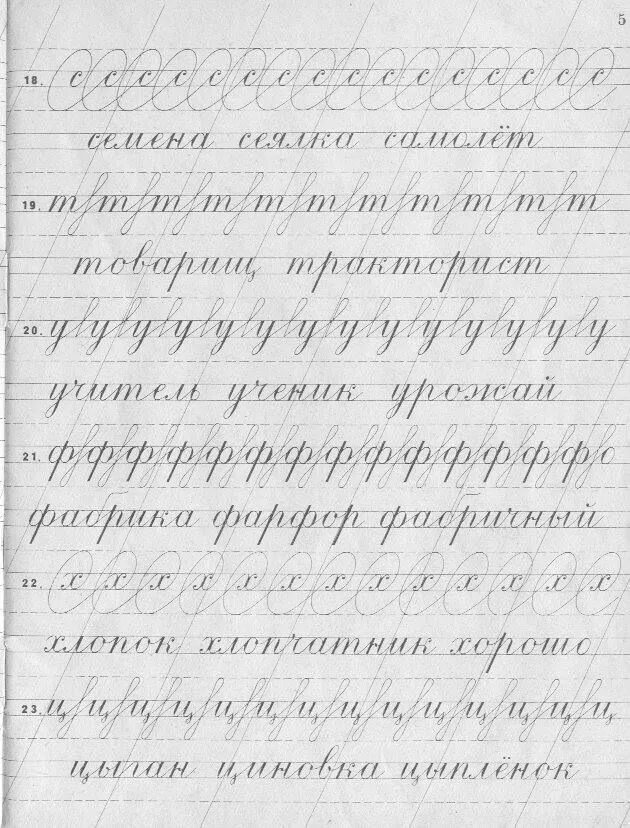 5
18. с с с с с с с с с с с с с с с с
семена сеялка самолёт
19. т т т т т т т т т т т т т т
товарищ тракторист
20. у у у у у у у у у у у у у у
учитель ученик урожай
21. ф ф ф ф ф ф ф ф ф ф ф ф ф ф
фабрика фарфор фабричный
22. х х х х х х х х х х х х х
хлопок хлопчатник хорошо
23. ц ц ц ц ц ц ц ц ц ц ц ц ц ц
цыган циновка цыплёнок